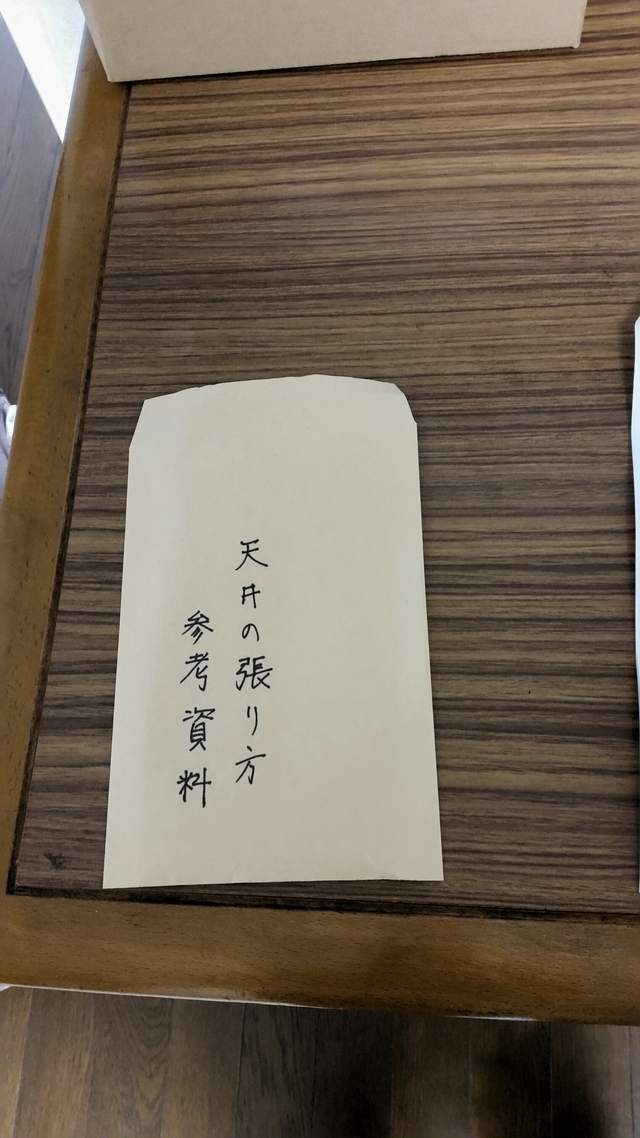 天井の張り方
参考資料